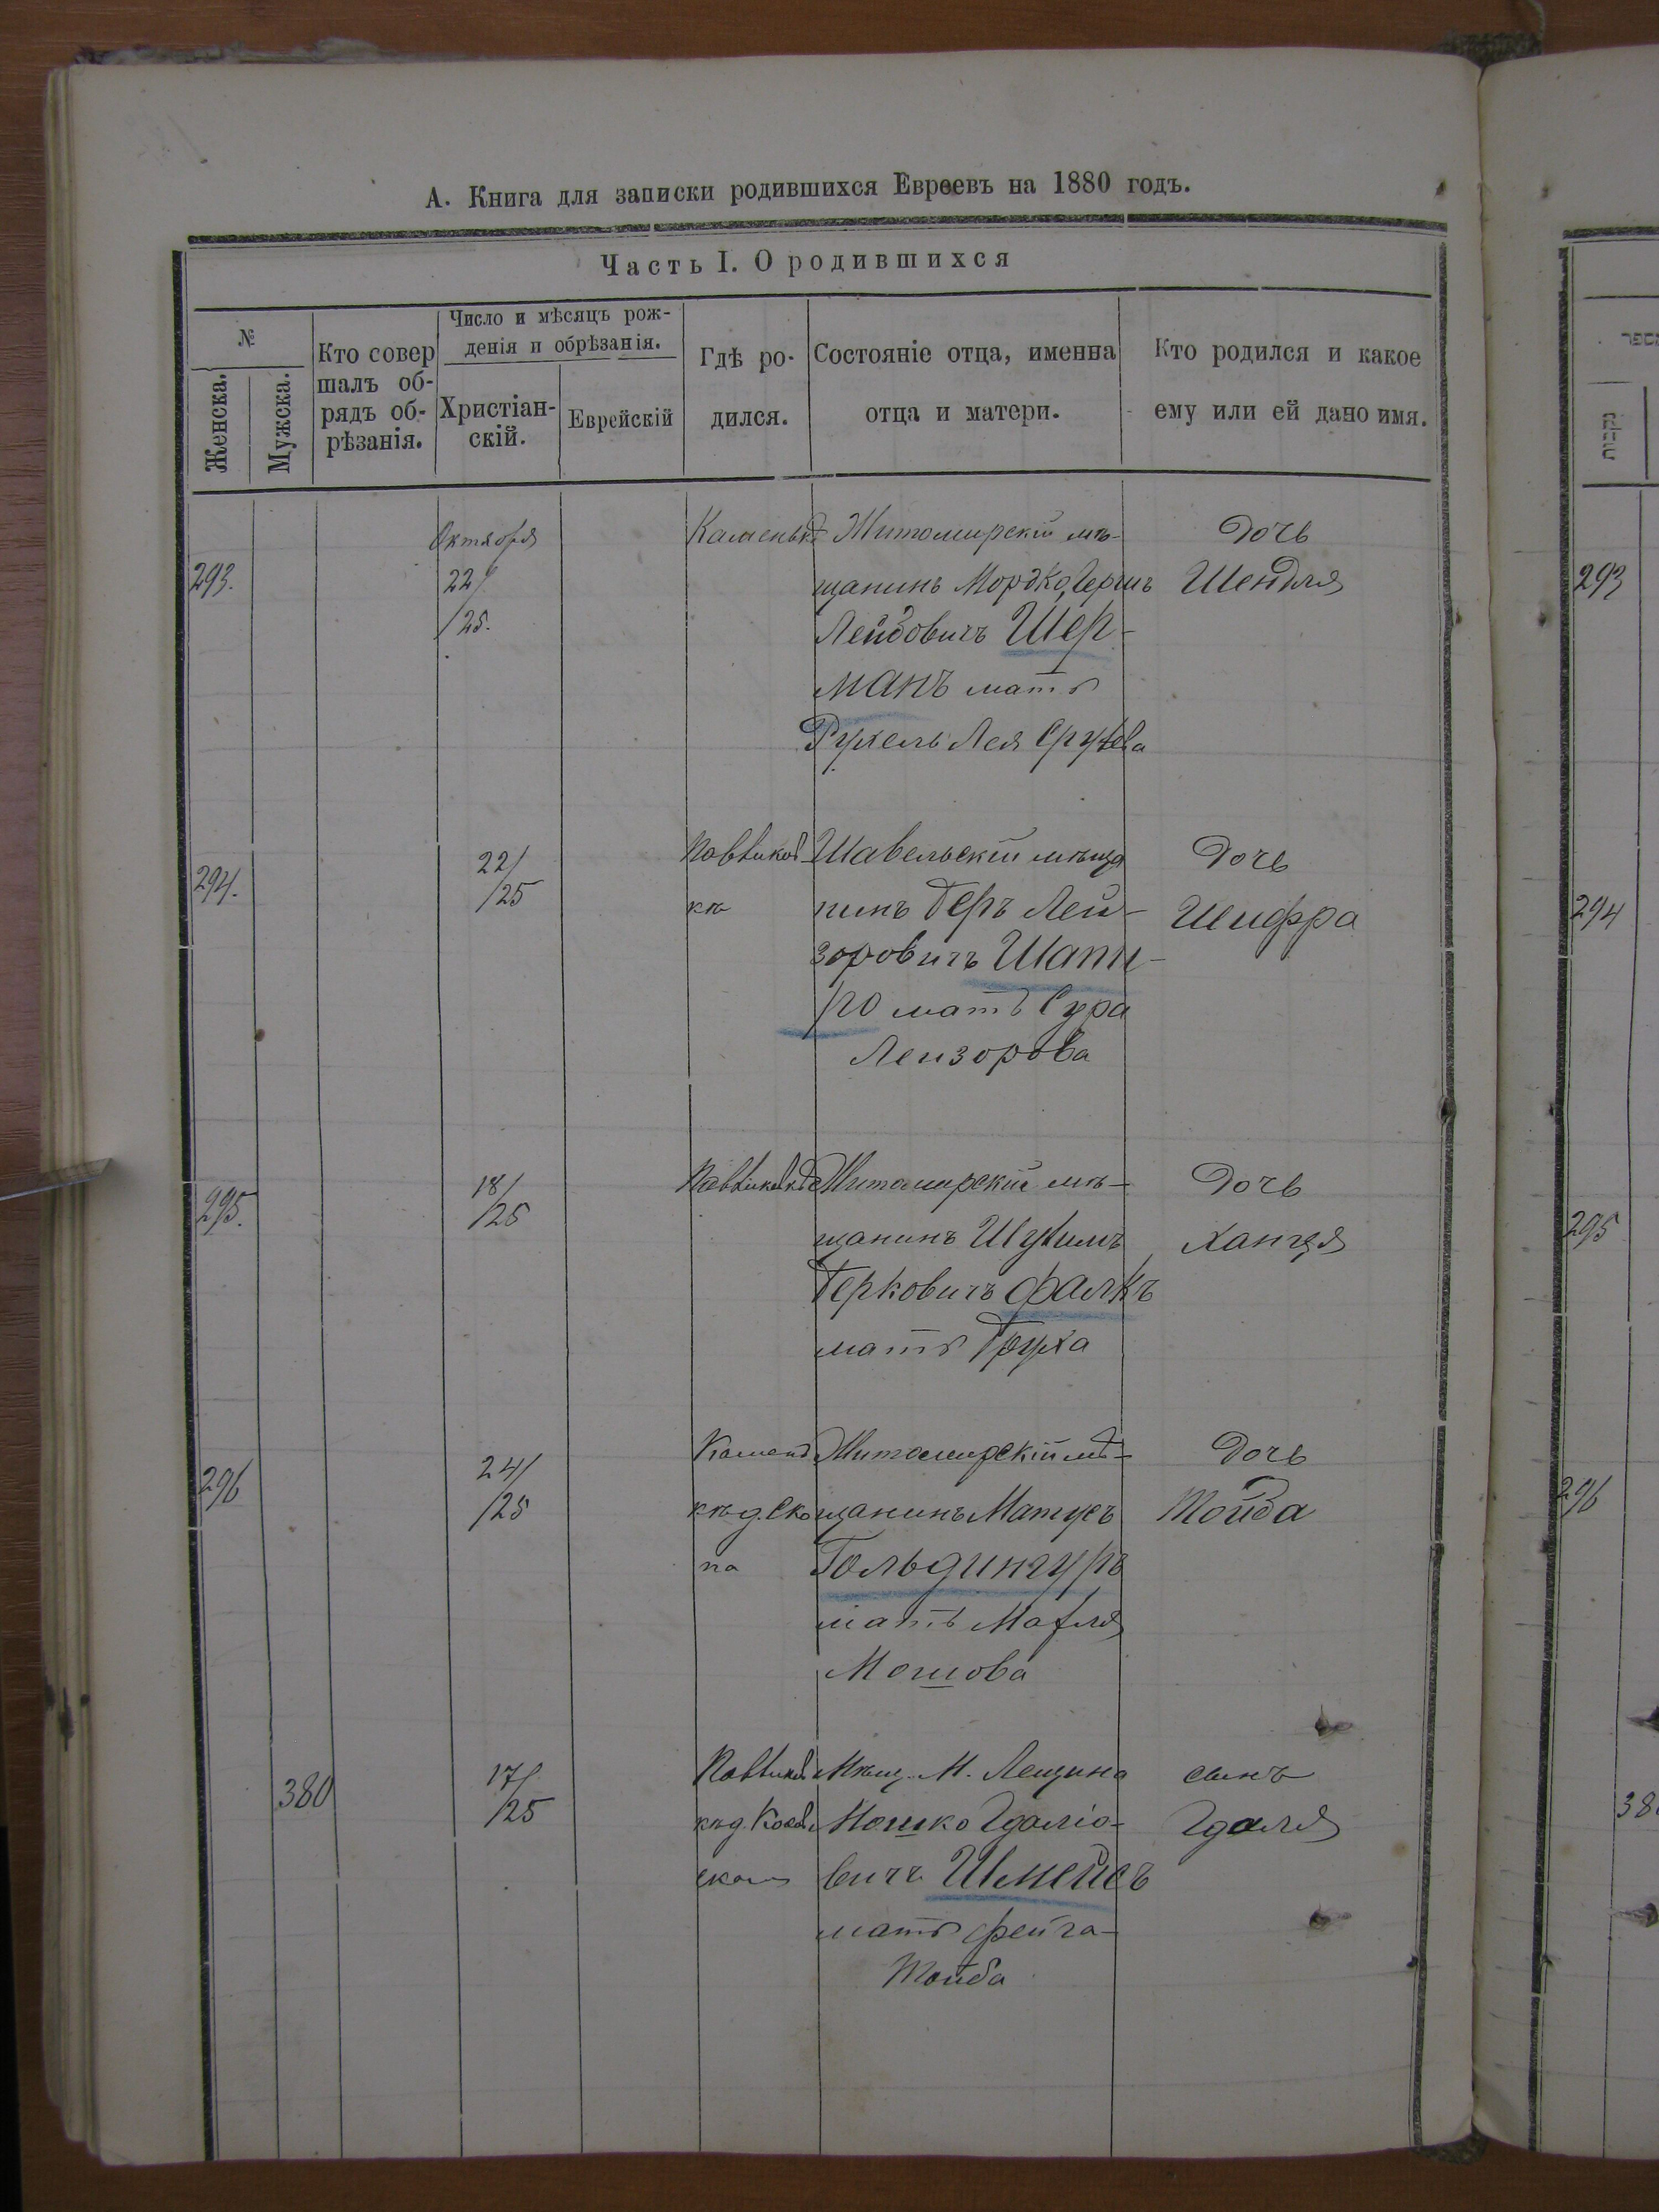 А. Книга для записки родившихся Евреевъ на 1880 годъ.
Часть I. О родившихся
№
Женска.
Мужска.
Кто совер
шалъ об-
рядъ об-
рѣзанія.
Число и мѣсяцъ рож-
денія и обрѣзанія.
Христіан-
скій.
Еврейскій
Гдѣ ро-
дился.
Состояніе отца, именна
отца и матери.
Кто родился и какое
ему или ей дано имя.
293.
Октября
22/
/25.
Житомирскій мѣ-
щанинъ Мордко Гершъ
Лейбовичъ Шер-
манъ мать
Рухель Лея
Дочь
Шендля
294.
22/
/25
Шавельскій мѣща
нинъ Беръ Лей-
зоровичъ Шапи-
ро мать Сура
Лейзорова
Дочь
Шифра
295.
18/
/25
Житомирскій мѣ-
щанинъ
Берковичъ Фалкъ
мать Бруха
Дочь
Ханця
296
24/
/25
Житомирскій мѣ-
щанинъ Матусъ
Гольдингуръ
мать
Мошова
Дочь
Тойба
380
17/
/25
Мѣщ. М. Лещина
Мошко Гдаліо-
вичъ Шмейсъ
мать Фейга-
Тойба
сынъ
Гдаля
293
294
295
296
38